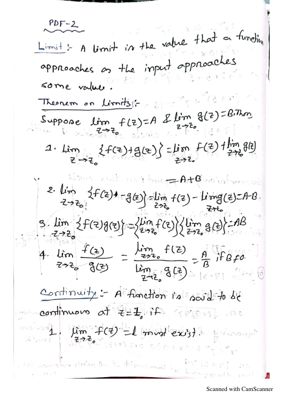 PDF-2
Limit :- A limit is the value that a function
approaches as the input approaches
some value.
Theorem on limits:-
Suppose lim z→z₀ f(z)=A & lim z→z₀ g(z)=B. Then
1. lim z→z₀ {f(z)+g(z)} = lim z→z₀ f(z) + lim z→z₀ g(z)
= A+B
2. lim z→z₀ {f(z) - g(z)} = lim z→z₀ f(z) - lim g(z) = A-B.
3. lim z→z₀ {f(z)g(z)} = {lim z→z₀ f(z)} {lim z→z₀ g(z)} = AB
4. lim z→z₀ f(z)/g(z) = lim z→z₀ f(z) / lim z→z₀ g(z) = A/B if B≠0
Continuity :- A function is said to be
continuous at z=z₀ if
1. lim z→z₀ f(z) = l must exist.
Scanned with CamScanner